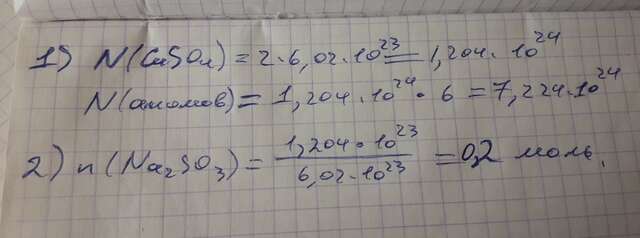 1) N(CuSO₄) = 2·6,02·10²³ = 1,204·10²⁴
N(атомов) = 1,204·10²⁴·6 = 7,224·10²⁴
2) n(Na₂SO₃) = 1,204·10²³ / 6,02·10²³ = 0,2 моль.